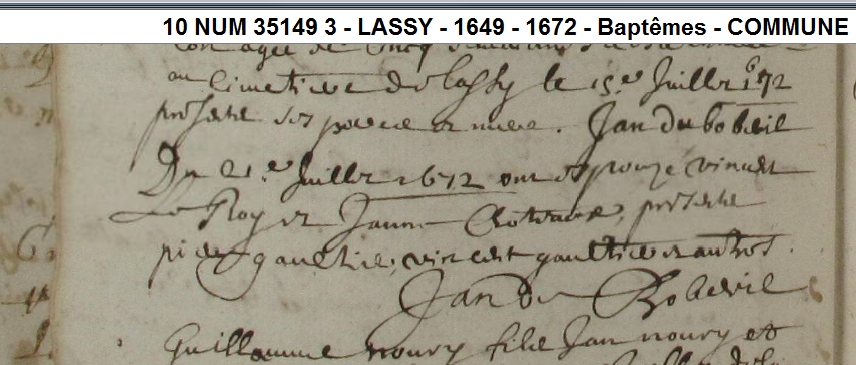 10 NUM 35149 3 - LASSY - 1649 - 1672 - Baptêmes - COMMUNE
agee de Cinq
au Cimetiere de Lassy le 15e Juillet 1672
presente ses pere et mere. Jan du bobeil
Du 21e Juillet 1672 ont espouze vincent
Le Roy et Janne presente
pierre gaultier, vincent gaultier et autres.
Jan du Boberil
Guillaume noury filz Jan noury et